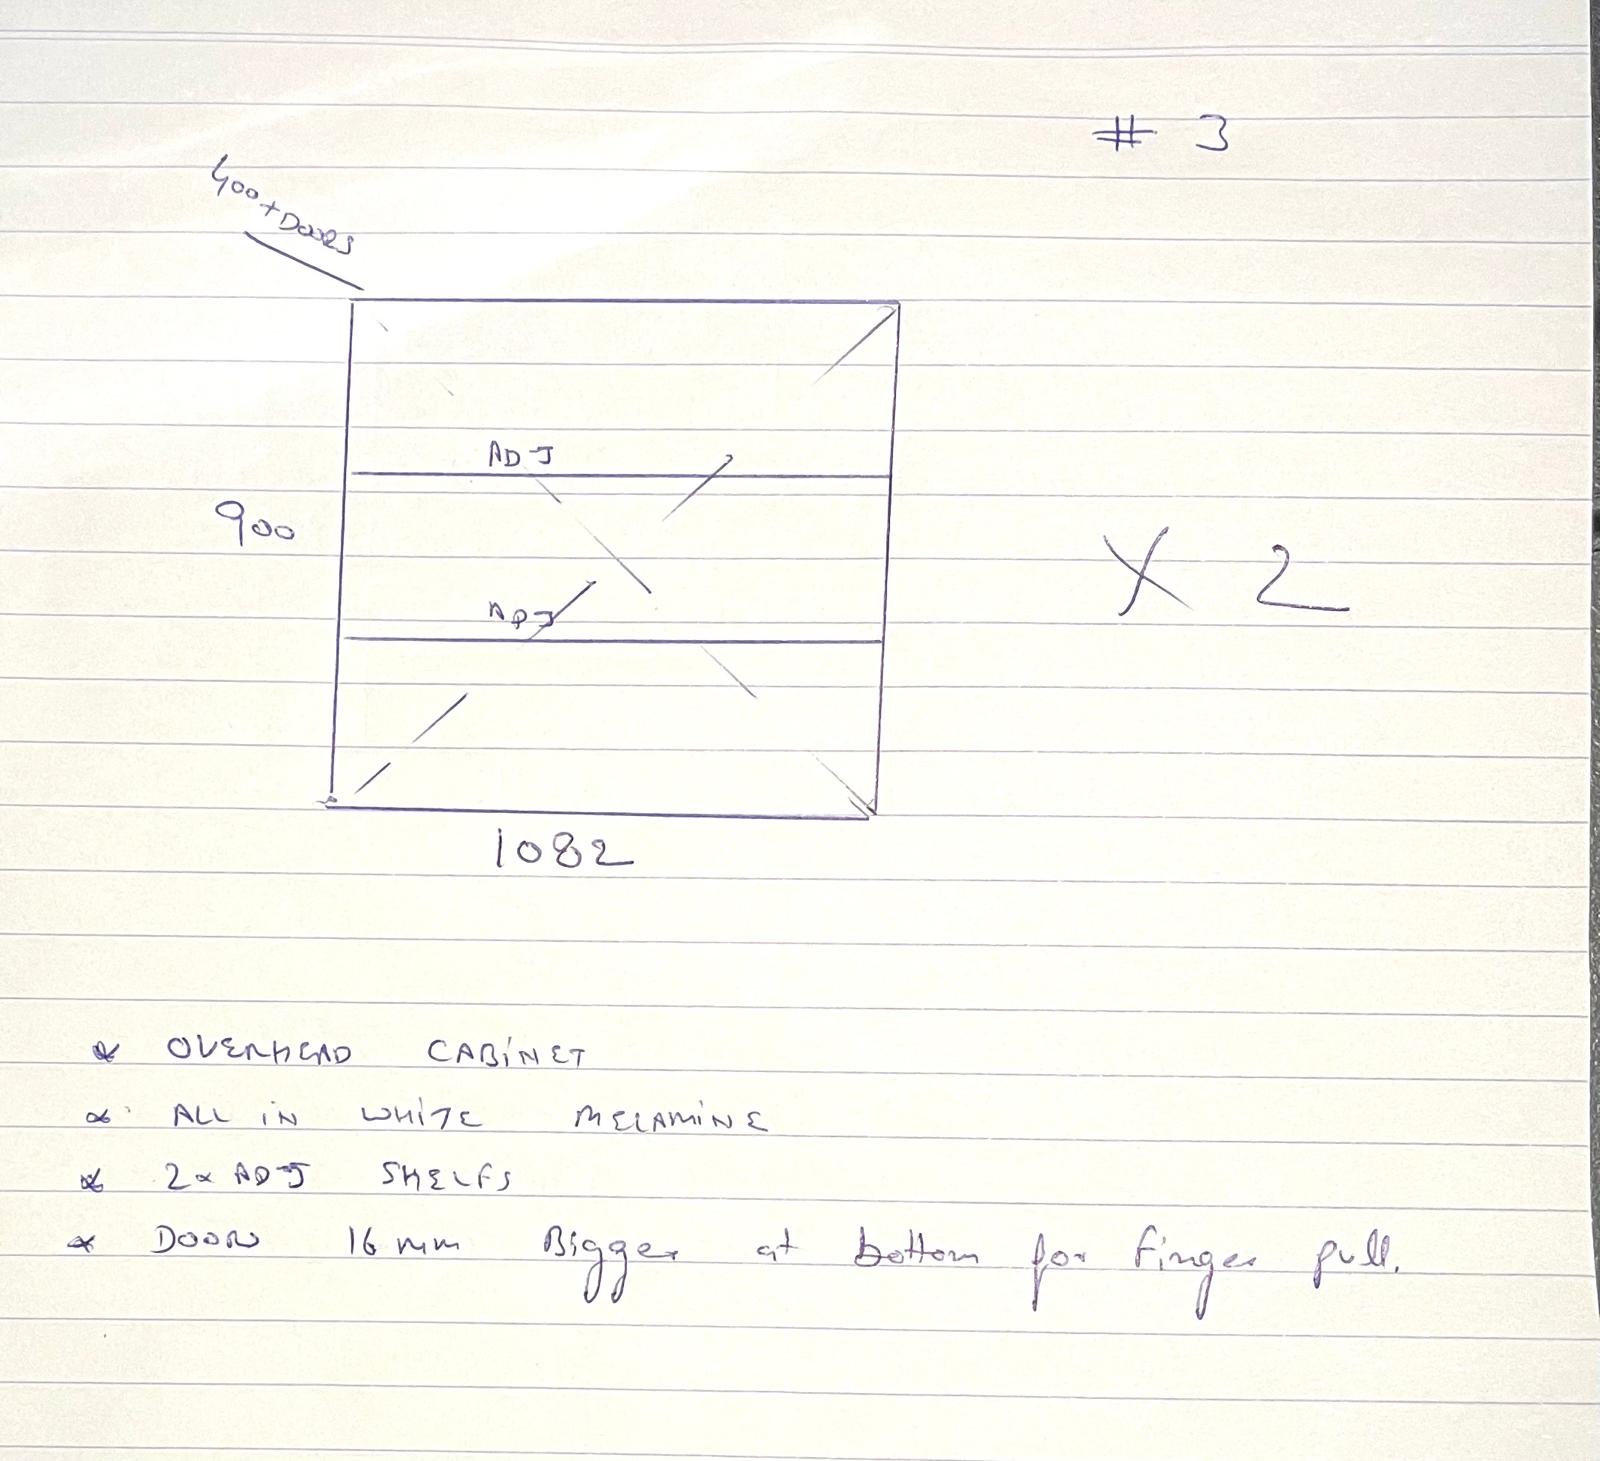 # 3
400+DOORS
ADJ
900
ADJ
X 2
1082
* OVERHEAD CABINET
* ALL IN WHITE MELAMINE
* 2x ADJ SHELFS
* DOORS 16 mm Bigger at bottom for finger pull.